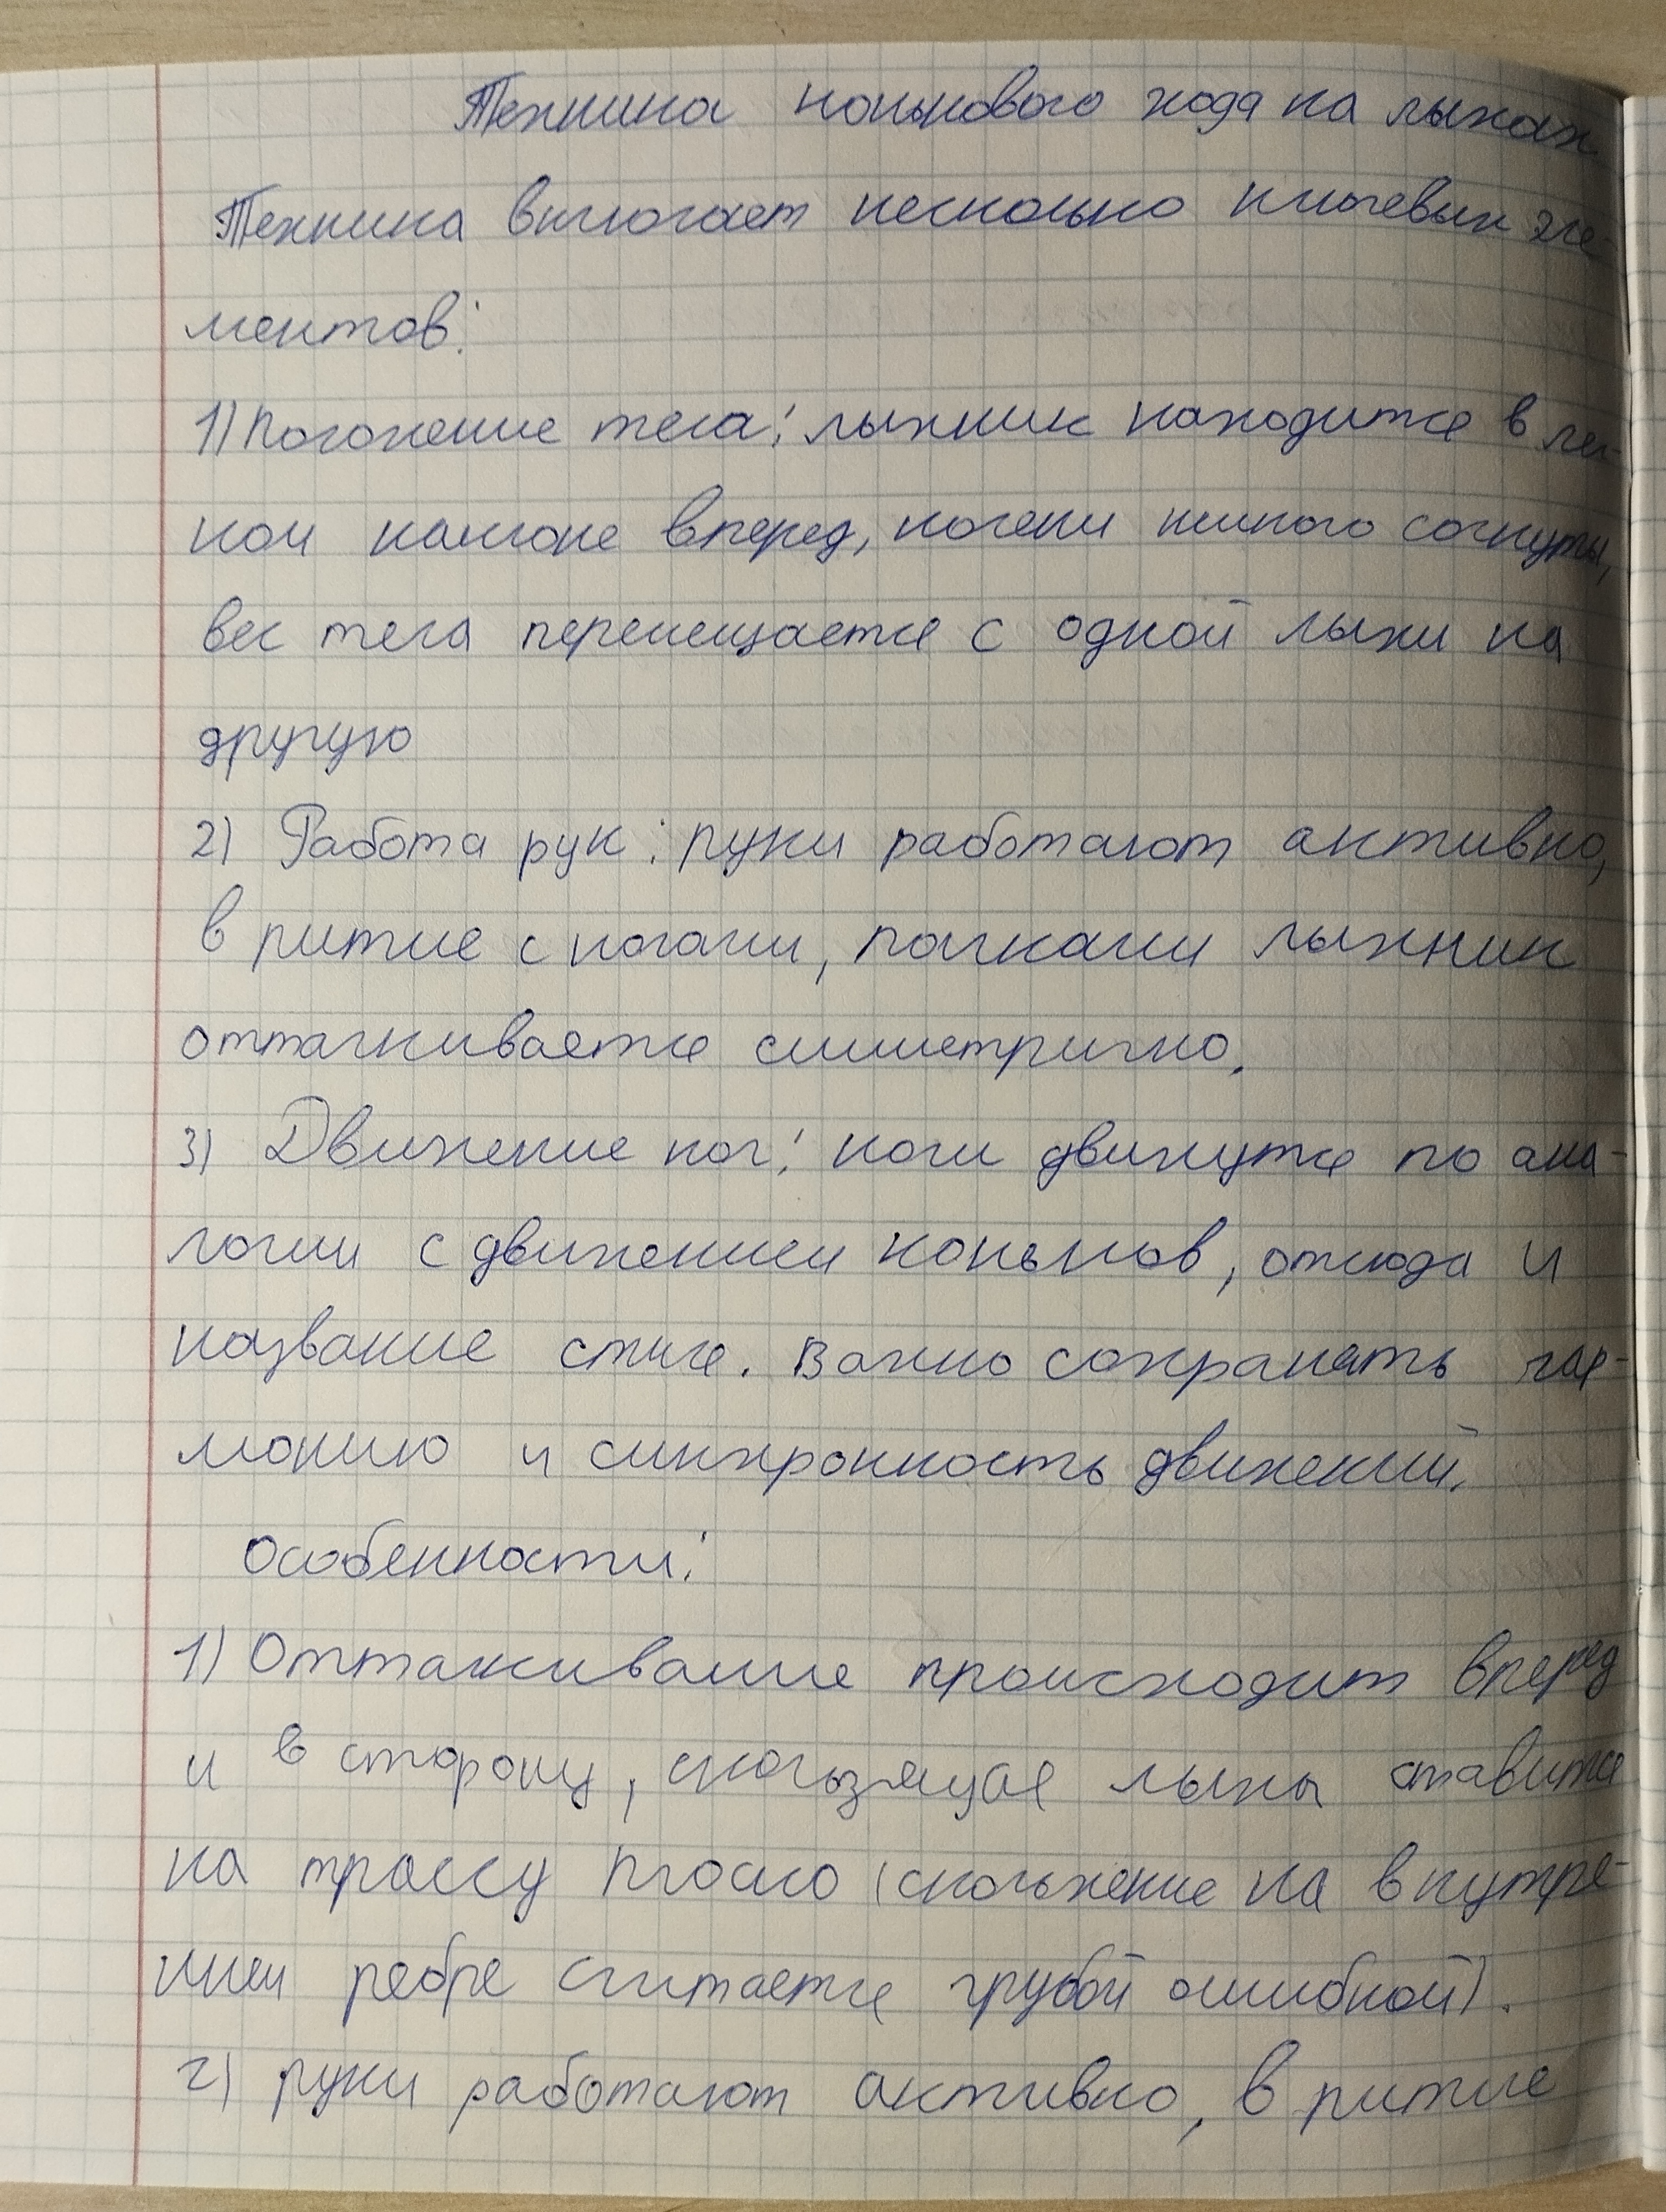 Техника конькового хода на лыжах
Техника включает несколько ключевых эле-
ментов:
1) Положение тела: лыжник находится в лег-
ком наклоне вперед, колени немного согнуты,
вес тела перемещается с одной лыжи на
другую
2) Работа рук: руки работают активно,
в ритме с ногами, палками лыжник
отталкивается симметрично.
3) Движение ног: ноги движутся по ана-
логии с движением коньков, отсюда и
название стиля. Важно сохранять гар-
монию и синхронность движений.
Особенности:
1) Отталкивание происходит вперед
и в сторону, скользящая лыжа ставится
на трассу плоско (скольжение на внутре-
ннем ребре считается грубой ошибкой).
2) руки работают активно, в ритме